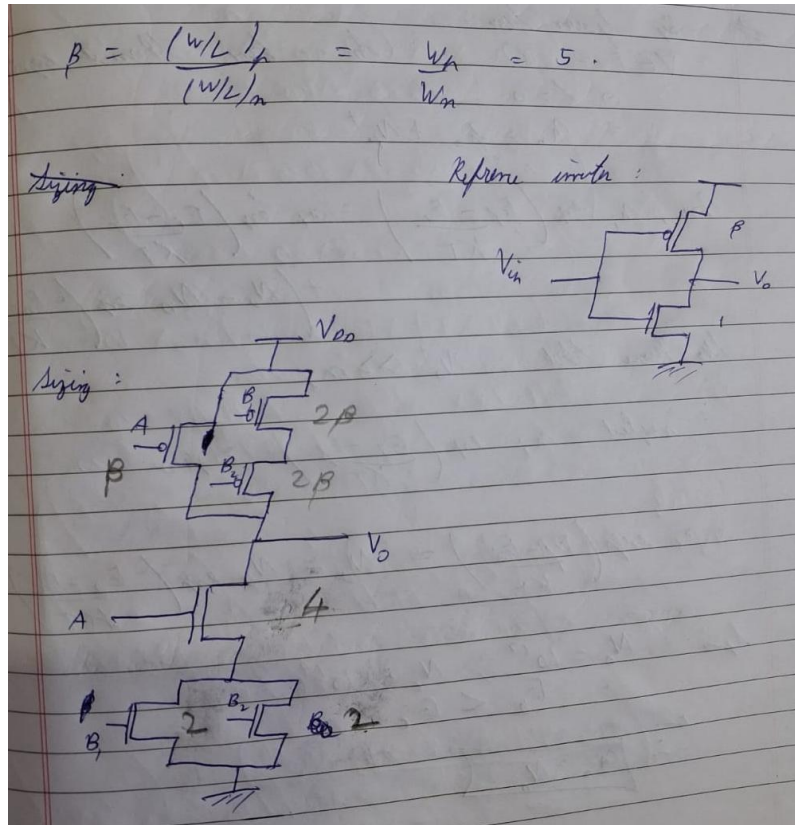 β = (W/L)p / (W/L)n = Wp / Wn = 5 .
Sizing
Refrence inverter :
β
Vin
Vo
1
VDD
Sizing :
B
A
2β
β
B2
2β
Vo
A
4
B1
2
B2
2